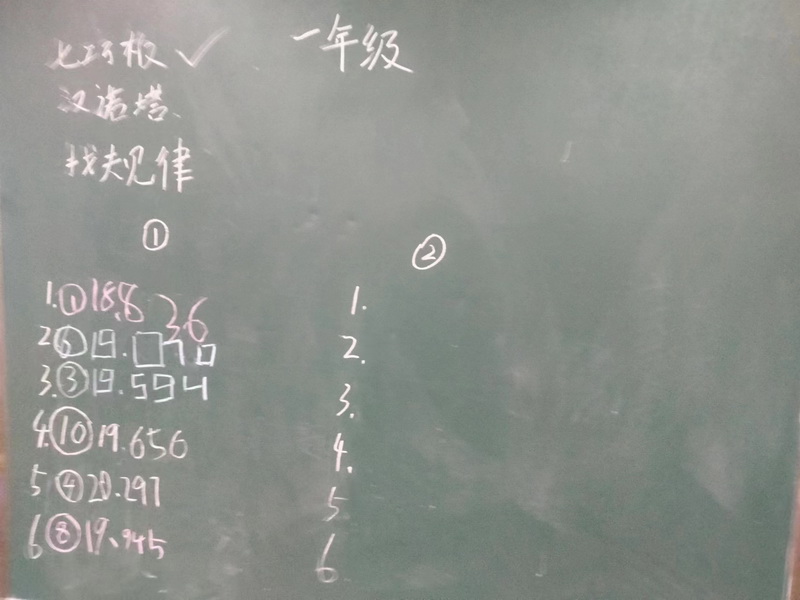 一年级
七巧板 ✓
汉诺塔、
找规律
①
1.①18.836
2⑥19.070
3.③19.594
4.⑩19.656
5④20.297
6⑧19.945
②
1.
2.
3.
4.
5
6.